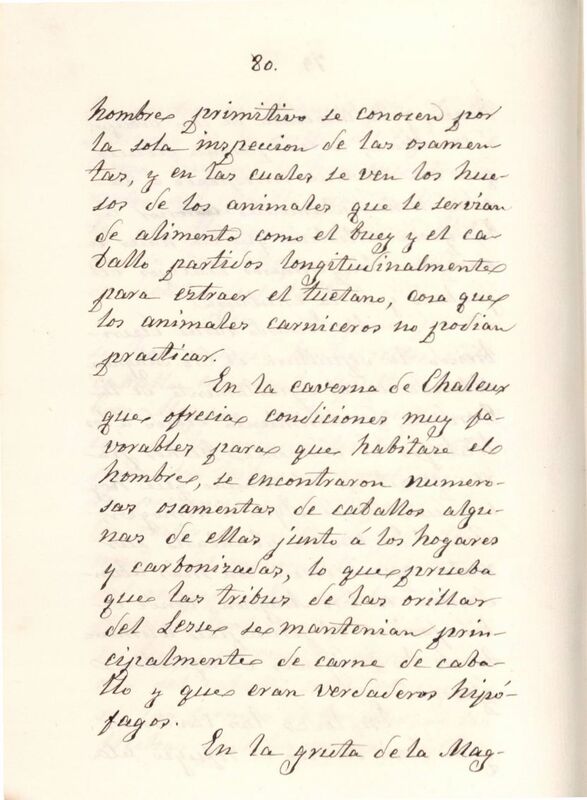 80.
hombre primitivo se conocen por
la sola inspeccion de las osamen-
tas, y en las cuales se ven los hue-
sos de los animales que le servian
de alimento como el buey y el ca-
ballo partidos longitudinalmente
para estraer el tuetano, cosa que
los animales carniceros no podian
practicar.
En la caverna de Chaleux
que ofrecia condiciones muy fa-
vorables para que habitase el
hombre, se encontraron numero-
sas osamentas de caballos algu-
nas de ellas junto á los hogares
y carbonizadas, lo que prueba
que las tribus de las orillas
del Lesse se mantenian prin-
cipalmente de carne de caba-
llo y que eran verdaderos hipó-
fagos.
En la gruta de la Mag-